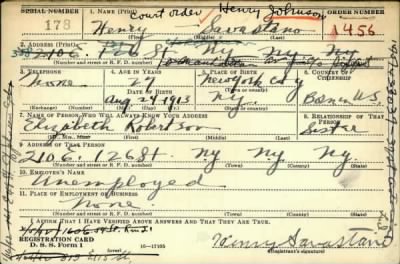 SERIAL NUMBER 1. NAME (Print) court order Henry Johnson ORDER NUMBER
178 Henry Savastano 1456
(First) (Middle) (Last)
2. ADDRESS (Print)
2106. 126 St NY NY NY
(Number and street or R. F. D. number) (Town) (County) (State)
3. TELEPHONE 4. AGE IN YEARS 5. PLACE OF BIRTH 6. COUNTRY OF CITIZENSHIP
None 27 New York City
DATE OF BIRTH (Town or county) Born U.S.
Aug 29 1913 N.Y.
(Exchange) (Number) (Mo.) (Day) (Yr.) (State or country)
7. NAME OF PERSON WHO WILL ALWAYS KNOW YOUR ADDRESS 8. RELATIONSHIP OF THAT PERSON
Elizabeth Robertson Sister
(Mr., Mrs., Miss) (First) (Middle) (Last)
9. ADDRESS OF THAT PERSON
2106. 126 St NY NY NY
(Number and street or R. F. D. number) (Town) (County) (State)
10. EMPLOYER'S NAME
Unemployed
11. PLACE OF EMPLOYMENT OR BUSINESS
None
(Number and street or R. F. D. number) (Town) (County) (State)
I AFFIRM THAT I HAVE VERIFIED ABOVE ANSWERS AND THAT THEY ARE TRUE.
REGISTRATION CARD
D. S. S. Form 1 16—17105 Henry Savastano
(Registrant's signature)